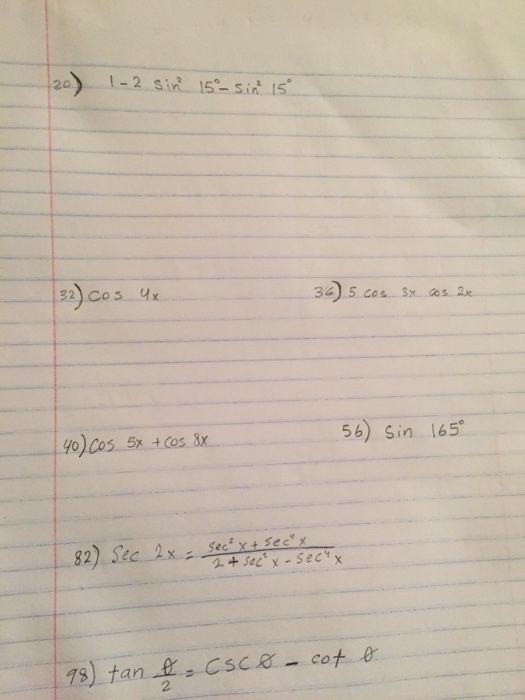 20) 1-2 sin² 15°- sin² 15°
32) cos 4x
36) 5 cos 3x cos 2x
40) cos 5x + cos 8x
56) sin 165°
82) Sec 2x = (sec² x + sec⁴ x)/(2 + sec² x - sec⁴ x)
98) tan θ/2 = csc θ - cot θ